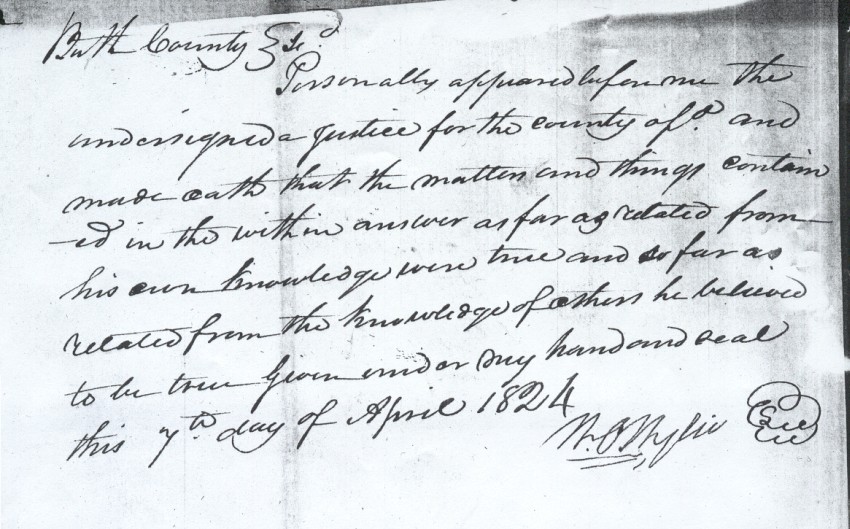 Bath County Sc.t
Personally appeared before me the
undersigned a Justice for the county of.d and
made oath that the matters and things contain
-ed in the within answer as far as related from
his own knowledge were true and so far as
related from the knowledge of others he believed
to be true Given under my hand and seal
this 7th day of April 1824